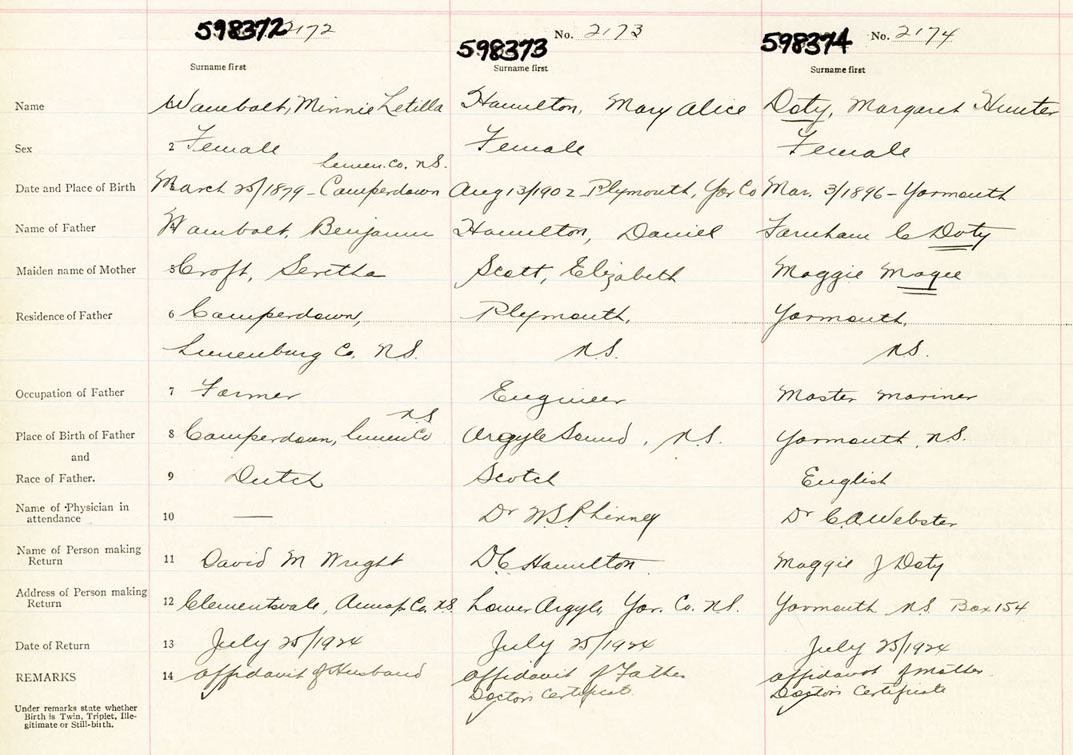 598372 2172 598373 No. 2173 598374 No. 2174
Surname first Surname first Surname first
Name Wambolt, Minnie Letilla Hamilton, Mary Alice Doty, Margaret Hunter
Sex 2 Female Female Female
Lunen. Co. N.S.
Date and Place of Birth March 25/1879 - Camperdown Aug 13/1902 - Plymouth, Yar Co Mar. 3/1896 - Yarmouth
Name of Father Wambolt, Benjamin Hamilton, Daniel Farnham C Doty
Maiden name of Mother 5 Croft, Seretha Scott, Elizabeth Maggie Magee
Residence of Father 6 Camperdown, Plymouth, Yarmouth,
Lunenburg Co. N.S. N.S. N.S.
Occupation of Father 7 Farmer Engineer Master Mariner
N.S
Place of Birth of Father 8 Camperdown, Lunen Co Argyle Sound, N.S. Yarmouth, N.S.
and
Race of Father. 9 Dutch Scotch English
Name of Physician in
attendance 10 — Dr W S Phinney Dr C A Webster
Name of Person making
Return 11 David M Wright D C Hamilton Maggie J Doty
Address of Person making
Return 12 Clementsvale, Annap. Co. N.S. Lower Argyle, Yar. Co. N.S. Yarmouth N.S. Box 154
Date of Return 13 July 25/1924 July 25/1924 July 25/1924
REMARKS 14 affidavit of Husband affidavit of Father affidavit of Mother
Doctors Certificate Doctors Certificate
Under remarks state whether
Birth is Twin, Triplet, Ille-
gitimate or Still-birth.